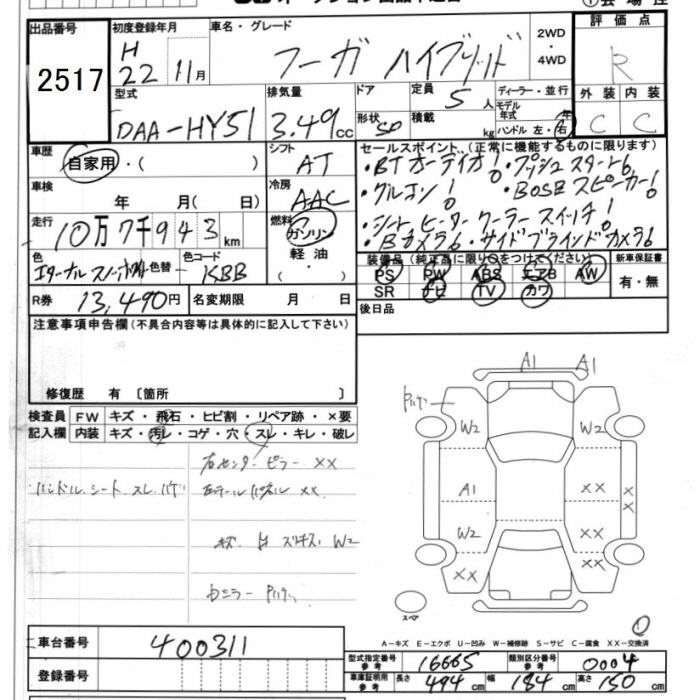 出品番号 初度登録年月 車名・グレード 2WD・4WD 評価点
2517 H 22 11月 フーガ ハイブリッド R
型式 排気量 ドア 定員 5人 ディーラー・並行 外装 内装
DAA-HY51 3.49cc 形状 SD 積載 kg モデル年式 年 C C
ハンドル 左・右
車歴 シフト セールスポイント..(正常に機能するものに限ります)
自家用・( ) AT ・BTオーディオ! ・プッシュスタート!
車検 冷房 ・クルコン! ・BOSEスピーカー!
年 月( 日) AAC ・シートヒーター クーラー スイッチ!
走行 燃料 ・Bカメラ! ・サイドブラインドカメラ!
10万7千943km ガソリン・軽油・
色 色替 色コード KBB 装備品(純正品に限り○をつけてください) 新車保証書
PS PW ABS エアB AW 有・無
SR ナビ TV カワ
R券 13,490円 名変期限 月 日 後日品
注意事項申告欄(不具合内容等は具体的に記入して下さい)
修復歴 有 〔箇所 〕
検査員 FW キズ・飛石・ヒビ割・リペア跡・×要
記入欄 内装 キズ・汚レ・コゲ・穴・スレ・キレ・破レ
右センターピラー XX
ハンドル、シート、スレ、ハゲ
XX
W2
A1 A1
W2 W2
A1 XX XX
W2 XX
XX XX
スペア
①
A-キズ E-エクボ U-凹み W-補修跡 S-サビ C-腐食 XX-交換済
車台番号 400311
登録番号
型式指定番号 参考 16665 類別区分番号 参考 0004
車庫証明用 参考 長さ 494cm 幅 184cm 高さ 150cm